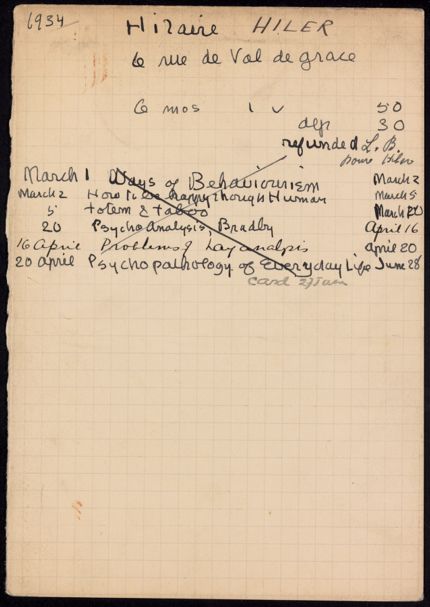 1934
Hilaire HILER
6 rue de Val de grace
6 mos 1 v 50
dep 30
refunded L. B.
pour Hiler
March 1 Ways of Behaviourism March 2
March 2 How to be happy though Human March 5
5 totem & taboo March 20
20 Psycho Analysis, Bradby April 16
16 April Problems of Lay analysis april 20
20 april Psychopathology of Everyday Life June 28
card 27 Jan